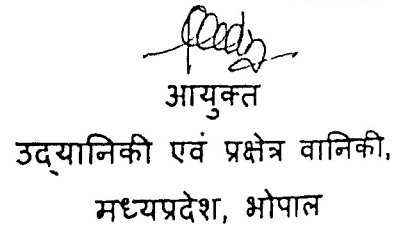 आयुक्त
उद्यानिकी एवं प्रक्षेत्र वानिकी,
मध्यप्रदेश, भोपाल